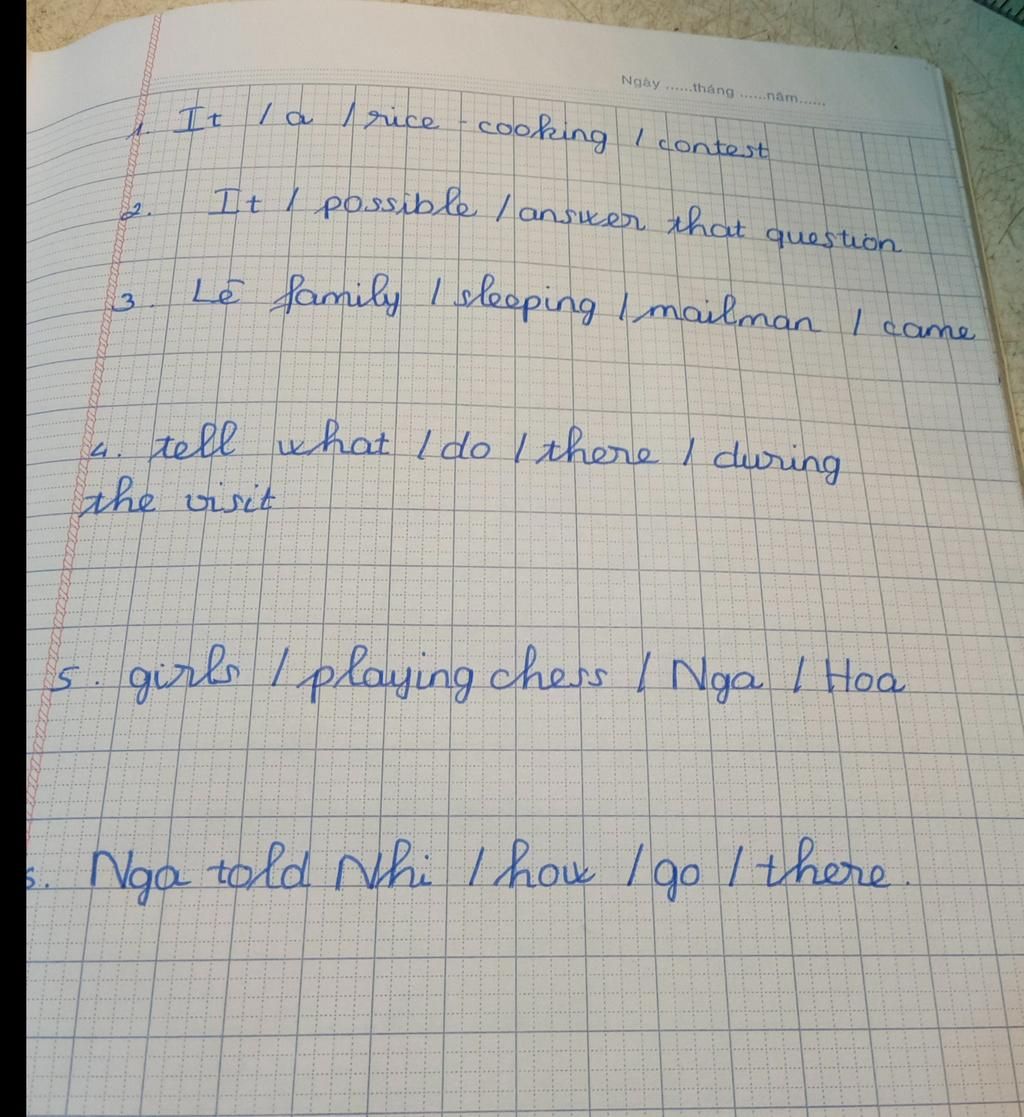 Ngày ......tháng ......năm......
1. It / a / rice - cooking / contest
2. It / possible / answer that question
3. Lê family / sleeping / mailman / came
4. tell what / do / there / during
the visit
5. girls / playing chess / Nga / Hoa
6. Nga told Nhi / how / go / there.